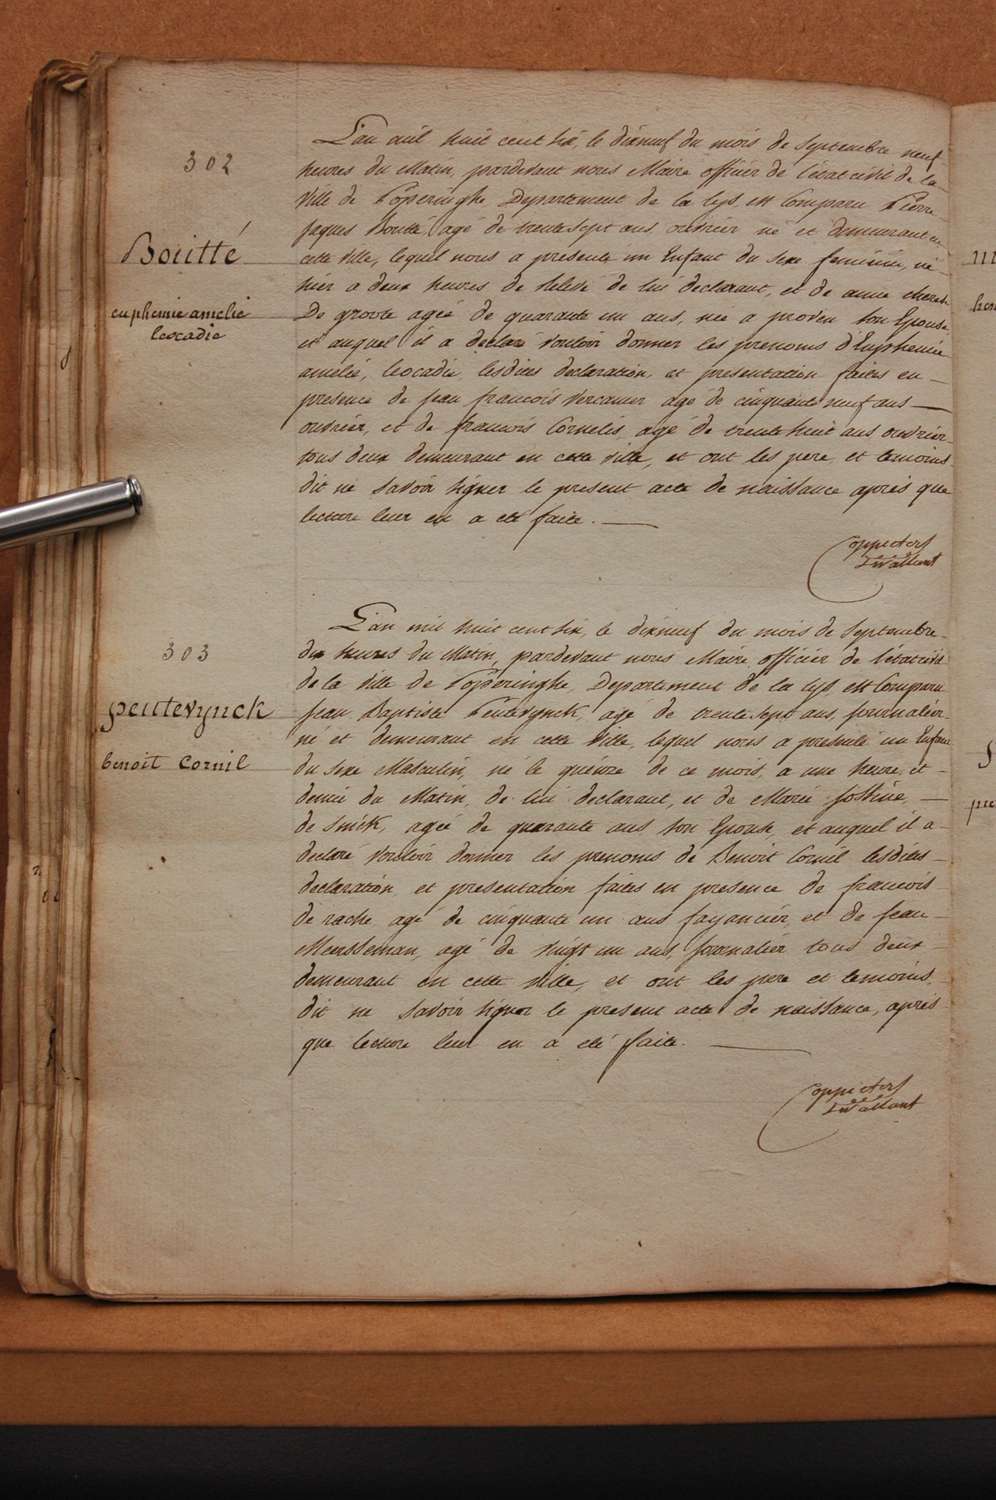 302
Boutté
euphemie amelie
leocadie
L'an mil huit cent six, le dixneuf du mois de Septembre neuf
heures du Matin, pardevant nous Maire officier de l'état civil de la
Ville de Poperinghe Departement de la lys, est Comparu Pierre
Jaques Boutté, agé de trente sept ans ouvrier né et demeurant en
cette ville, lequel nous a presenté un Enfant du sexe feminin, né
hier a deux heures de de lui declarant, et de anne
De groote agée de quarante un ans, née a proven son Epouse
et auquel il a declaré vouloir donner les prenoms d'Euphemie
amelie, leocadie lesdites declaration et presentation faites en
presence de Jean francois Vercamer agé de cinquante neuf ans
ouvrier, et de francois Cornelis, agé de trente huit ans ouvrier
tous deux demeurant en cette ville, et ont les pere et temoins
dit ne savoir signer le present acte de naissance après que
lecture leur en a eté faite.
303
peutevynck
benoit Cornil
L'an mil huit cent six, le dixneuf du mois de Septembre
dix heures du Matin, pardevant nous Maire officier de l'état civil
de la ville de Poperinghe, Departement de la lys, est Comparu
Jean Baptiste Peutevynck, agé de trente sept ans, journalier
né et demeurant en cette Ville, lequel nous a presenté un Enfant
du sexe Masculin, né le quinze de ce mois, a une heure et
demie du Matin, de lui declarant, et de Marie
de Smith, agée de quarante ans son Epouse, et auquel il a
declaré vouloir donner les prenoms de Benoit Cornil lesdites
declaration et presentation faites en presence de francois
de rache, agé de cinquante un ans fayancier, et de Jean
Mersseman, agé de vingt un ans, journalier tous deux
demeurant en cette ville, et ont les pere et temoins
dit ne savoir signer le present acte de naissance, après
que lecture leur en a eté faite.